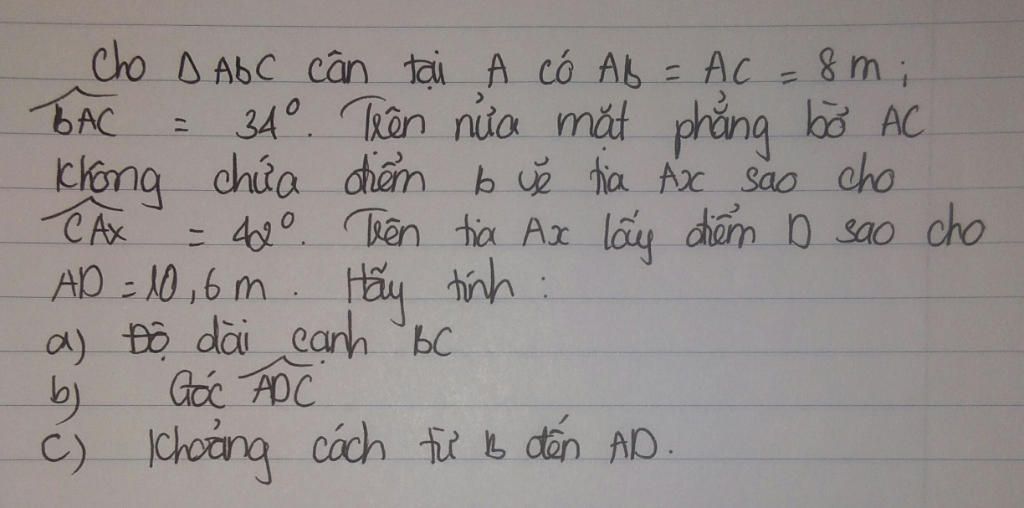 Cho Δ ABC cân tại A có AB = AC = 8 m ;
BAC = 34°. Trên nửa mặt phẳng bờ AC
không chứa điểm B vẽ tia Ax sao cho
CAx = 42°. Trên tia Ax lấy điểm D sao cho
AD = 10,6 m . Hãy tính :
a) Độ dài cạnh BC
b) Góc ADC
c) Khoảng cách từ B đến AD.